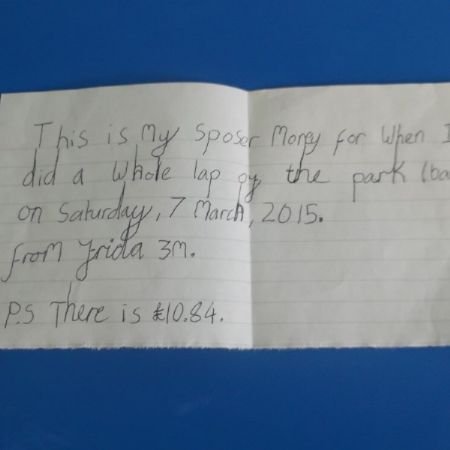 This is my sposer Money for when I
did a whole lap of the park (ba
on Saturday, 7 March, 2015.
from Frida 3M.
P.S There is £10.84.